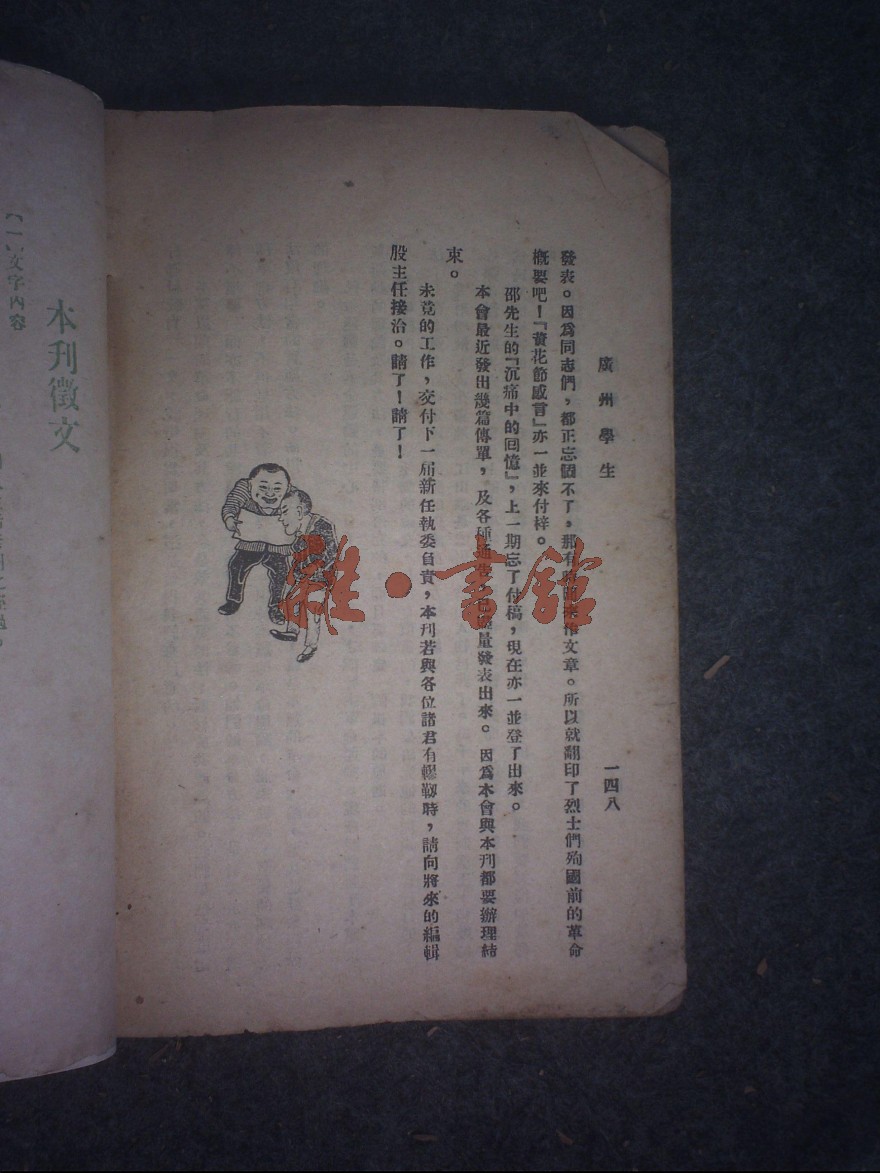 廣州學生
一四八
發表。因爲同志們，都正忘個不了，那有時間來作文章。所以就翻印了烈士們殉國前的革命
概要吧！「黃花節感言」亦一並來付梓。
邵先生的「沉痛中的回憶」，上一期忘了付稿，現在亦一並登了出來。
本會最近發出幾篇傳單，及各種通告，量發表出來。因爲本會與本刊都要辦理結
束。
未竟的工作，交付下一屆新任執委負責，本刊若與各位諸君有轇轕時，請向將來的編輯
股主任接洽。請了！請了！
雜·書館
本刊徵文
【一】文字內容